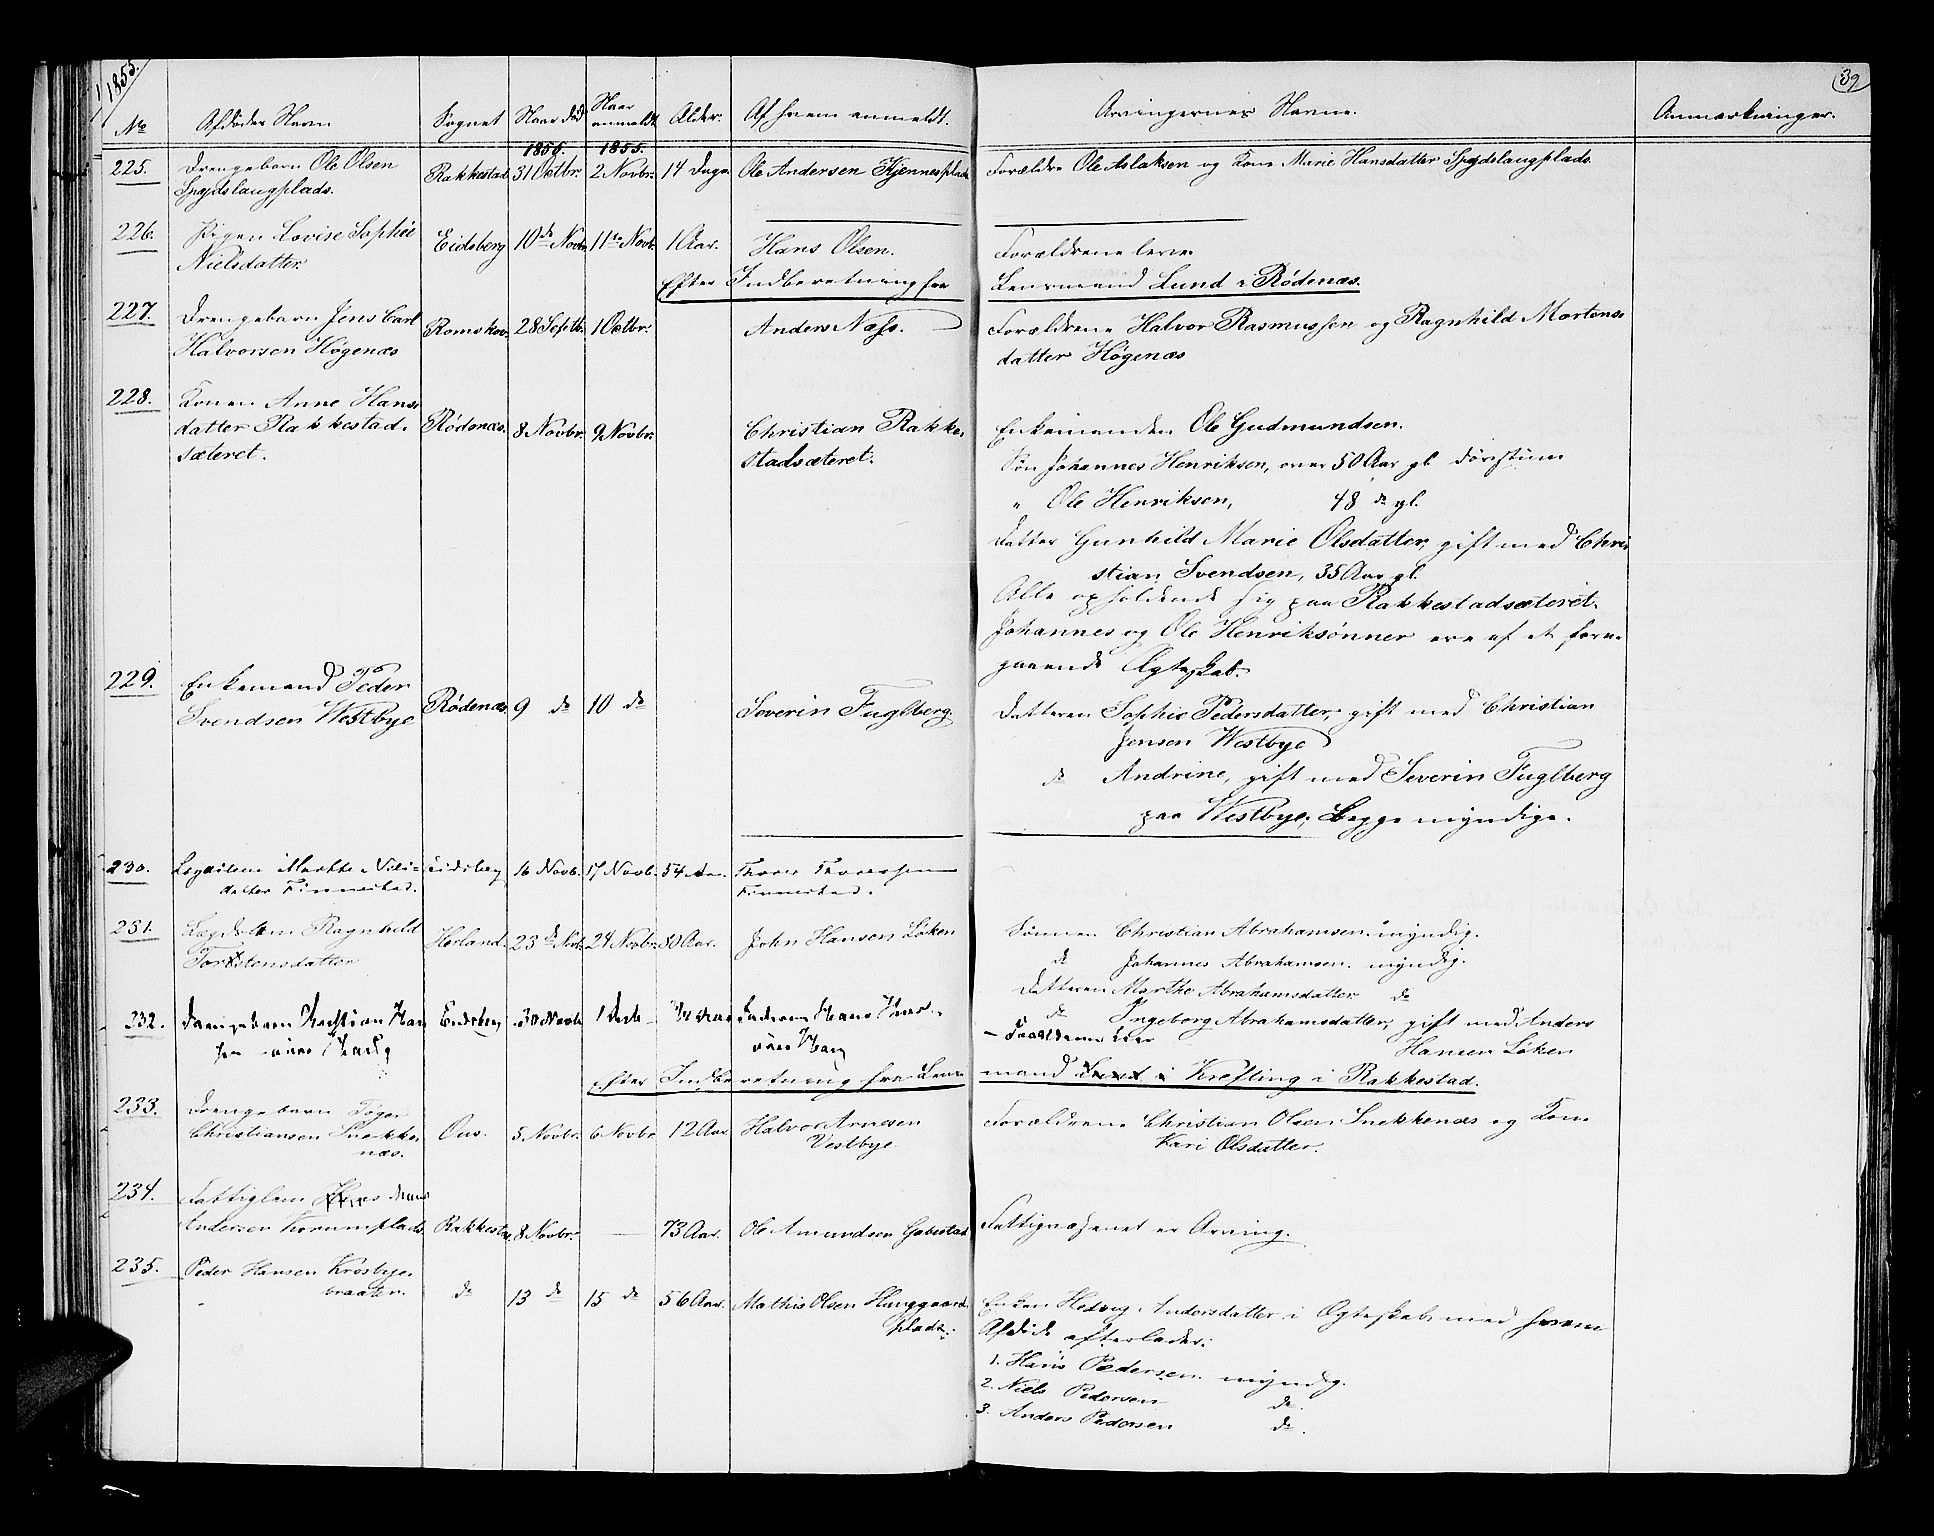 1855.
39
No Afdødes Navn Sognet Naar død Naar anmeldt Alder. Af hvem anmeldt. Arvingernes Navne. Anmærkninger.
1855. 1855.
225. Drengebarn Ole Olsen Rakkestad 31 Octbr. 2 Novbr. 14 Dage Ole Andersen Kjennesplads Forældre Ole Aslaksen og Kone Marie Hansdatter Spydslaugplads.
Spydslaugplads.
226. Pigen Lovise Sophie Eidsberg 10de Novbr 11te Novbr. 1 Aar. Hans Olsen. Forældrene leve.
Nielsdatter.
Efter Indberetning fra Lensmand Lund i Rødenæs.
227. Drengebarn Jens Carl Romskov. 28 Septb. 1 Octbr. Anders Næss. Forældrene Halvor Rasmussen og Ragnhild Mortens
Halvorsen Høgenæs datter Høgenæs
228. Konen Anne Hans
datter Rakkestad Rødenæs. 8 Novbr. 9 Novbr. Christian Rakke Enkemanden Ole Gudmundsen.
sæteret. stadsæteret. Søn Johannes Henriksen, over 50 Aar gl.
" Ole Henriksen, 48 do gl.
Datter Gunhild Marie Olsdatter, gift med Chri
stian Svendsen, 35 Aar gl.
Alle opholdende sig paa Rakkestadsæteret.
Johannes og Ole Henriksønner ere af et fore
gaaende Ægteskab.
229. Enkemand Peder
Svendsen Westbye Rødenæs 9 do 10 do Severin Fuglberg Datteren Sophie Pedersdatter, gift med Christian
Jensen Westbye
do Andrine, gift med Severin Fuglberg
paa Westbye; Begge myndige.
230. Lægdslem Marthe Niels Eidsberg 16 Novb. 17 Novb. 54 Thore Thoresen
datter Finnestad. Finnestad.
231. Lægdslem Ragnhild Herland. 23de Novb. 24 Novbr. 80 Aar. John Hansen Løken Sønnen Christian Abrahamsen. myndig.
Torstensdatter do Johannes Abrahamsen. myndig.
Datteren Marthe Abrahamsdatter do
do Ingeborg Abrahamsdatter, gift med Anders
Hansen Løken
232. Drengebarn Christian Han Eidsberg 30 Novb 1 Decb Faderen Hans - Forældrene lever
Efter Indberetning fra Lens mand Lund i Krefting i Rakkestad.
233. Drengebarn Tøger
Christiansen Snekke Ous. 5 Novbr. 6 Novbr 12 Aar. Halvor Arnesen Forældrene Christian Olsen Snekkenæs og Kone
næs. Vestbye. Kari Olsdatter.
234. Fattiglem Hans
Andersen Korumplads Rakkestad 8 Novbr. — 73 Aar. Ole Amundsen Gabestad Fattigvæsenet er Arving.
235. Peder Hansen Krosbye
braaten. do 13 do 15 do 56 Aar. Mathis Olsen Hauggaard Enken Hedvig Andersdatter i Ægteskab med hvem
plads. Afdøde efterlader:
1. Hans Pedersen myndig.
2. Niels Pedersen do.
3. Anders Pedersen do.